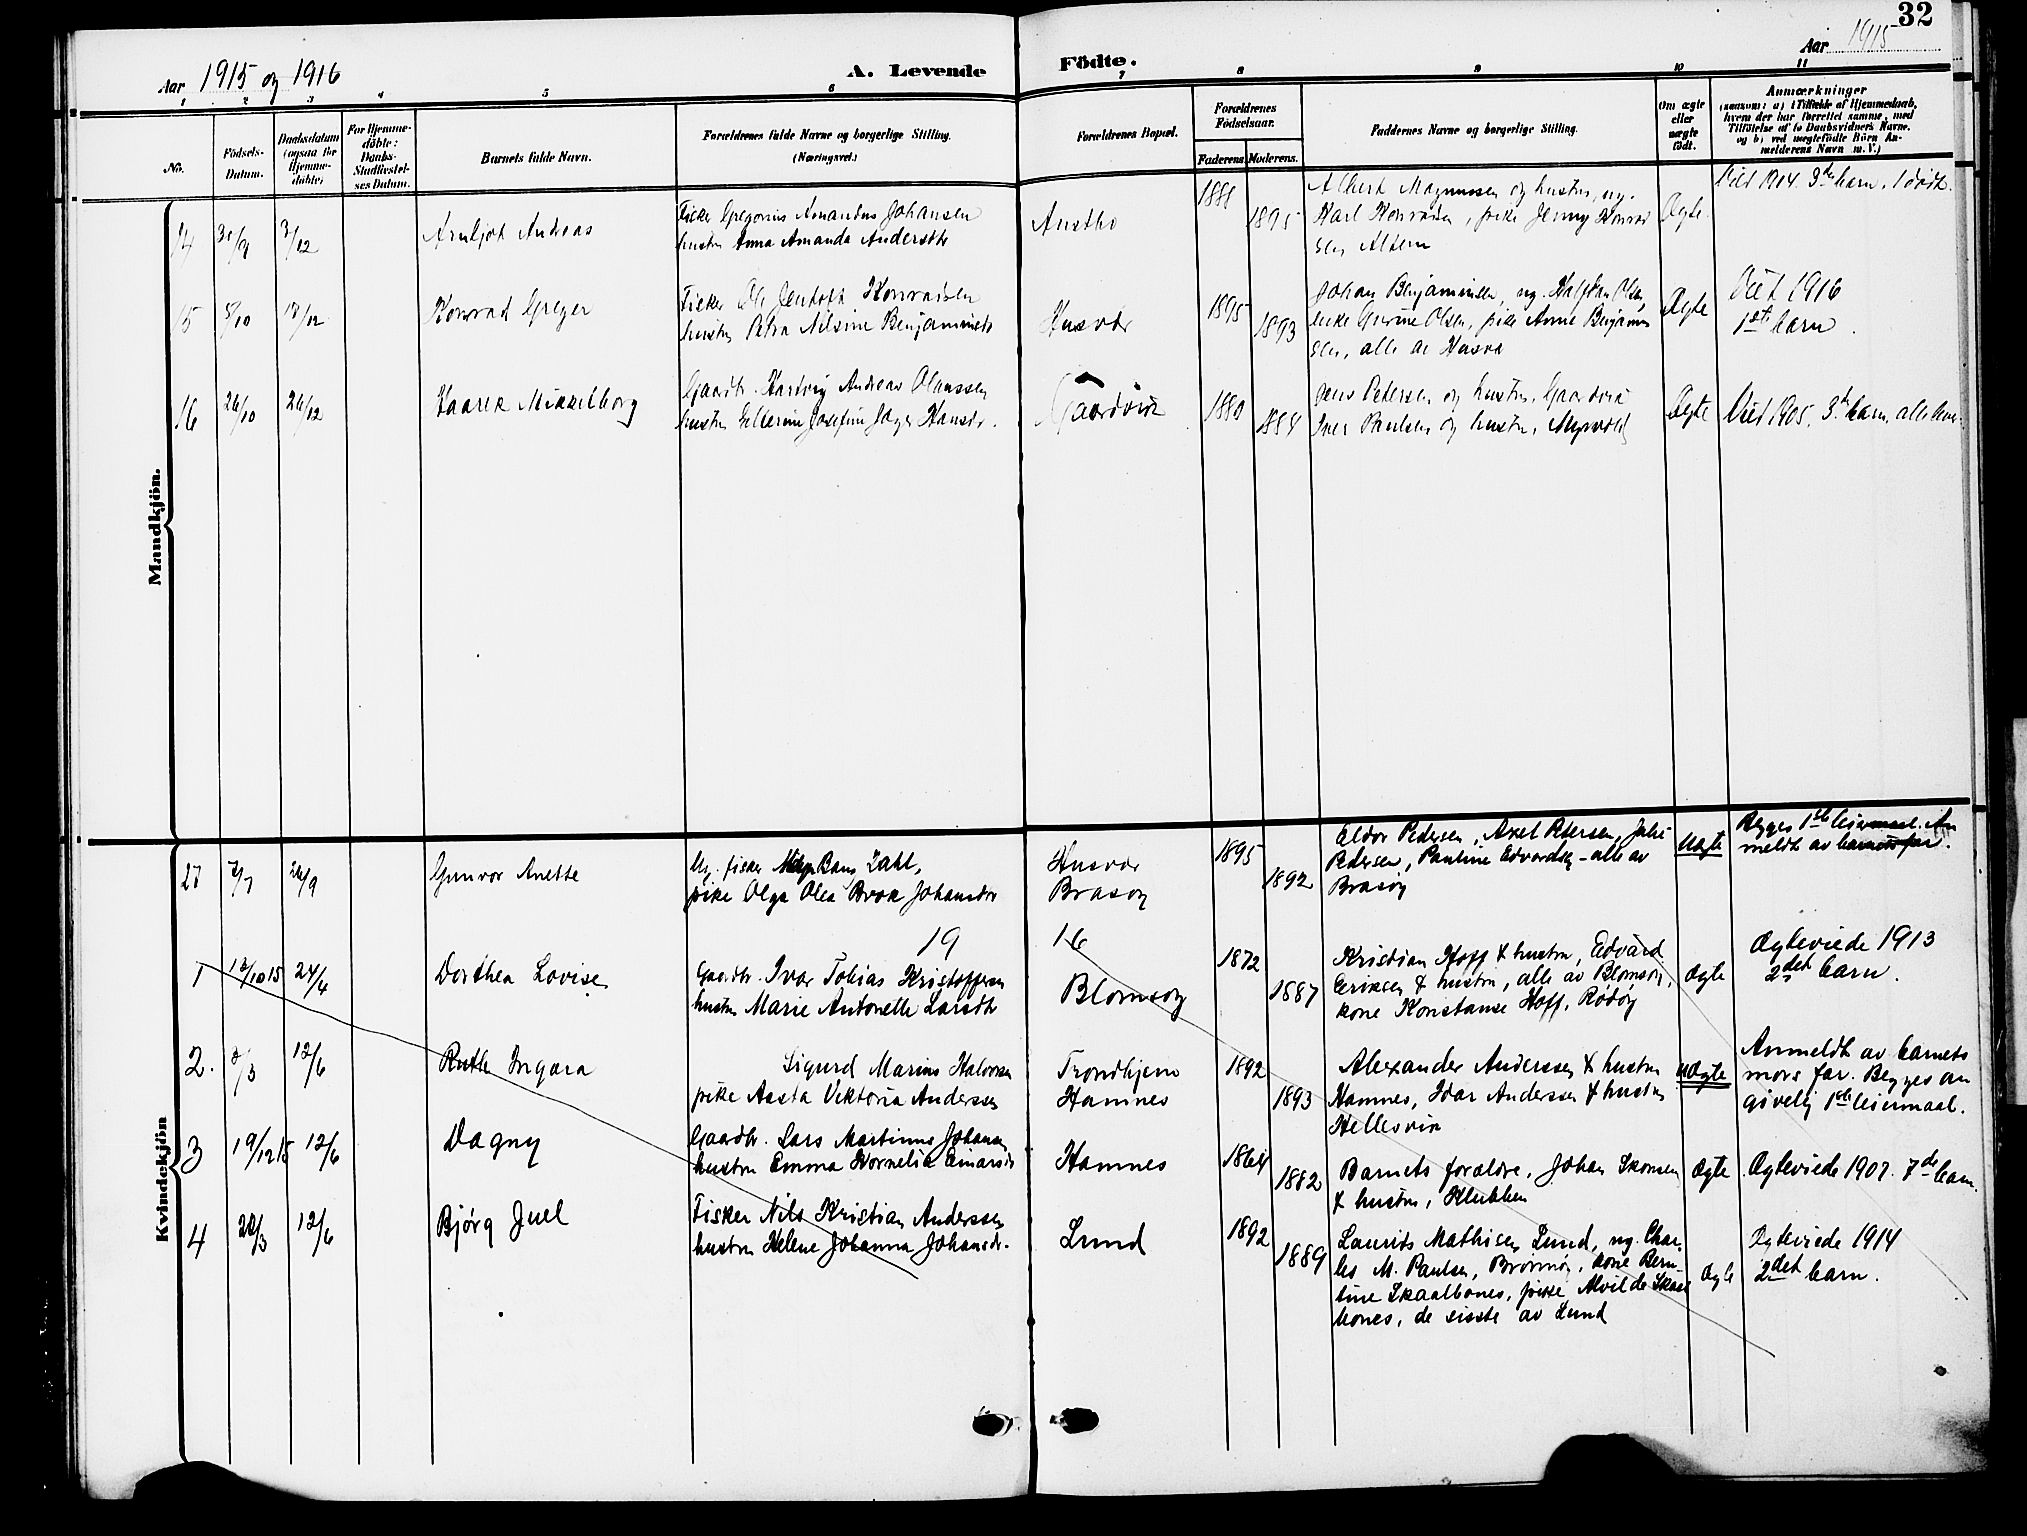 32
Aar 1915 og 1916
A. Levende Födte.
Aar 1915
1 2 3 4 5 6 7 8 9 10 11
No.
Födsels-
Datum.
Daabsdatum
(ogsaa for
Hjemme-
döbte)
For Hjemme-
döbte:
Daabs-
Stadfæstel-
ses Datum.
Barnets fulde Navn.
Forældrenes fulde Navne og borgerlige Stilling.
(Næringsvei.)
Forældrenes Bopæl.
Forældrenes
Födselsaar.
Faderens. Moderens.
Faddernes Navne og borgerlige Stilling.
Om ægte
eller
uægte
födt.
Anmærkninger
(saasom: a) i Tilfælde af Hjemmedaab,
hvem der har forrettet samme, med
Tilföielse af to Daabsvidners Navne.
og b) ved uægtefödte Börn An-
melderens Navn m. V.)
Mandkjön.
14 30/9 3/12 Arnljot Andreas
Fisker Gregorius Amandus Johansen
hustru Anna Amanda Andersdtr
Austbo
1888 1895
Albert Magnussen og hustru, ug.
Karl Konradsen, pike Jenny Konrad
sen Altern
Ægte
Viet 1914. 3die barn. 1 dödt.
15 5/10 13/12 Konrad Greger
Fisker Ole Jentoft Konradsen
hustru Petra Nilsine Benjaminsdtr
Husvær
1895 1893
Johan Benjaminsen, ug. Halfdan Olsen,
enke Gurine Olsen, pike Anne Benjamin
sen, alle av Husvær
Ægte
Viet 1916
1ste barn.
16 26/10 26/12 Kaarek Mikkelborg
Gaardbr. Hartvig Andreas Olaussen
hustru Ellerine Josefine Jager Hansdr.
Gaardvik
1880 1884
Jens Petersen og hustru, Gaardvik
Iver Paulsen og hustru, Myrvold
Ægte
Viet 1905. 3die barn, alle lever
Kvindekjön
27 2/7 26/9 Gunvor Anette
Ug. fisker Bang Zahl,
pike Olga Olea Brok Johansdtr
Husvær
Brasöy
1895 1892
Eldor Pedersen, Axel Petersen, Julie
Pedersen, Pauline Edvardsen - alle av
Brasöy
Uægte
Begges 1ste leiermaal. An
meldt av barnets far.
19 16
1 13/10 15 24/4 Dorthea Lovise
Gaardbr. Ivar Tobias Kristoffersen
hustru Marie Antonette Larsdtr
Blomsöy
1872 1887
Kristian Hoff & hustru, Edvard
Eriksen & hustru, alle av Blomsöy,
kone Konstanse Hoff, Rødøy
Ægte
Ægteviede 1913
2det barn.
2. 2/3 12/6 Ruth Ingara
Sigurd Marius Halvorsen
pike Aasta Viktoria Anderssen
Trondhjem
Hamnes
1892 1893
Alexander Anderssen & hustru
Hamnes, Ivar Anderssen & hustru
Hellesvik
Uægte
Anmeldt av barnets
mors far. Begges an
givelig 1ste leiermaal.
3 19/12 15 12/6 Dagny
Gaardbr. Lars Martinus Johansen
hustru Emma Kornelia Einarsdr
Hamnes
1864 1882
Barnets forældre, Johan Skonsen
& hustru, Klubben
Ægte
Ægteviede 1907. 7de barn.
4 28/3 12/6 Bjørg Juel
Fisker Nils Kristian Anderssen
hustru Helene Johanna Johansdr.
Lund
1892 1889
Laurits Mathisen Lund, ug. Char-
les M. Paulsen, Brönnöy, kone Bern-
tine Skaalbones, pike Alvilde Skaal
bones, de sisste av Lund
Ægte
Ægteviede 1914
2det barn.